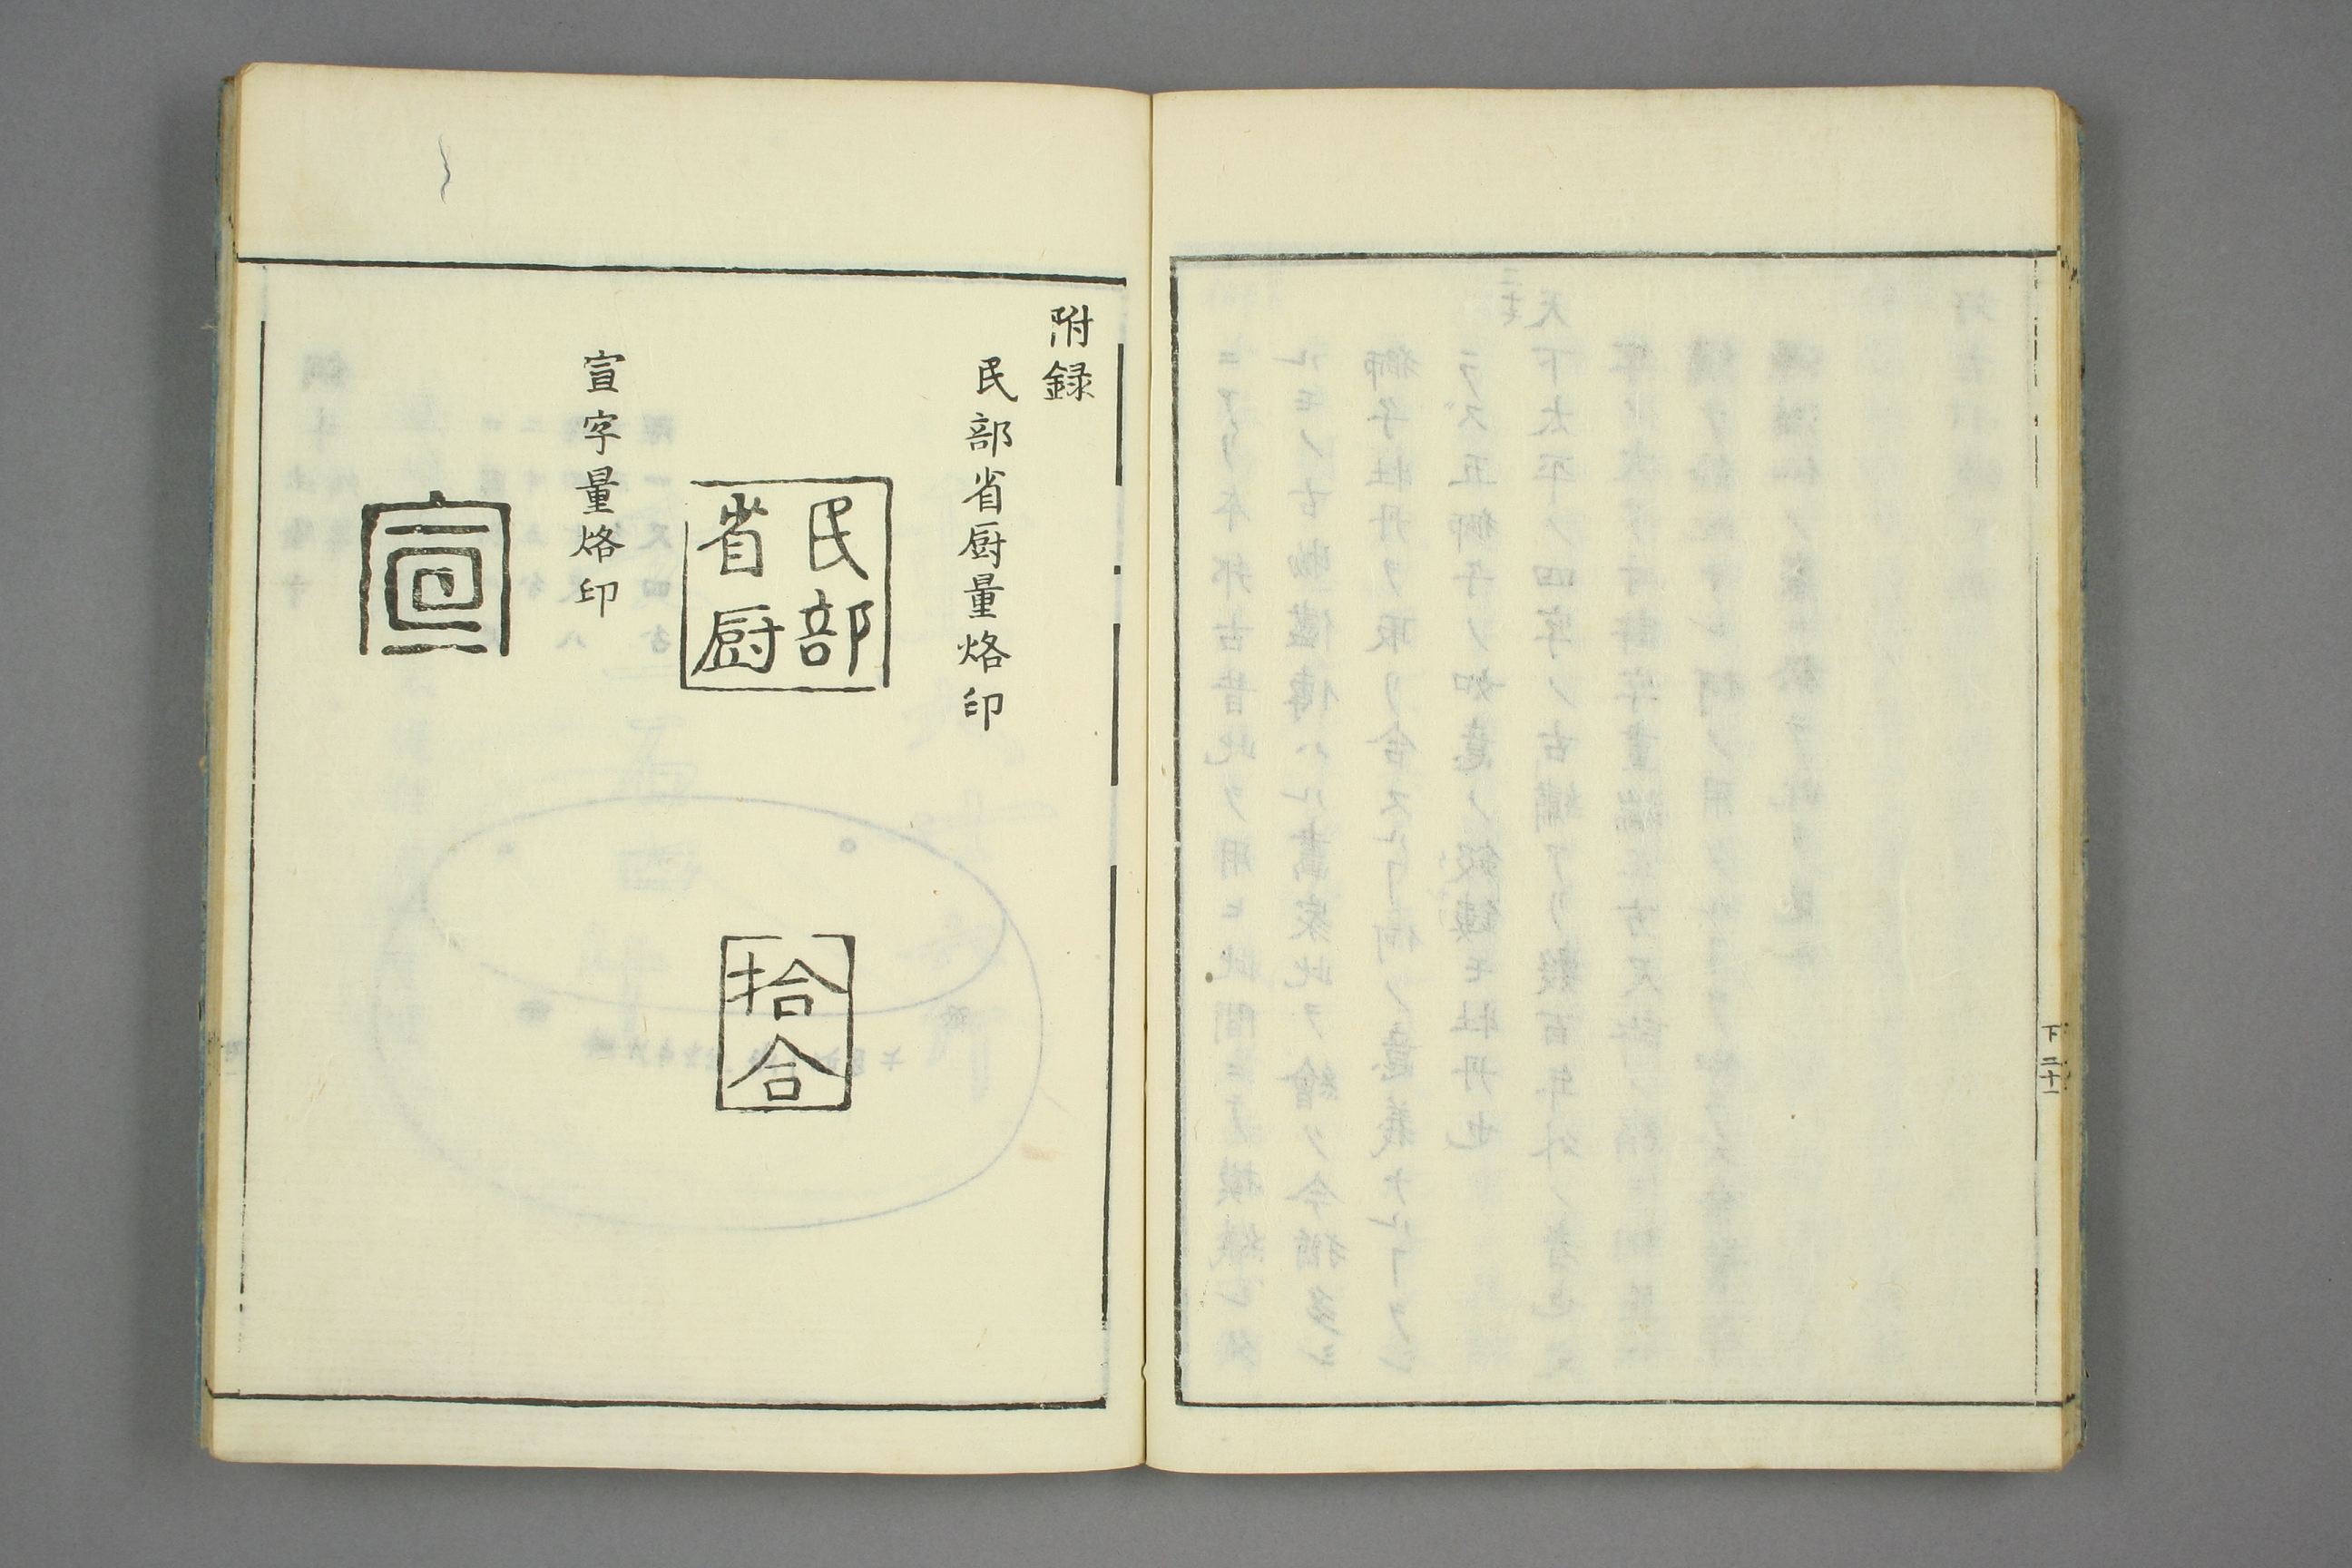 下 二十一
附録
民部省厨量烙印
民部
省厨
拾合
宣字量烙印
宣